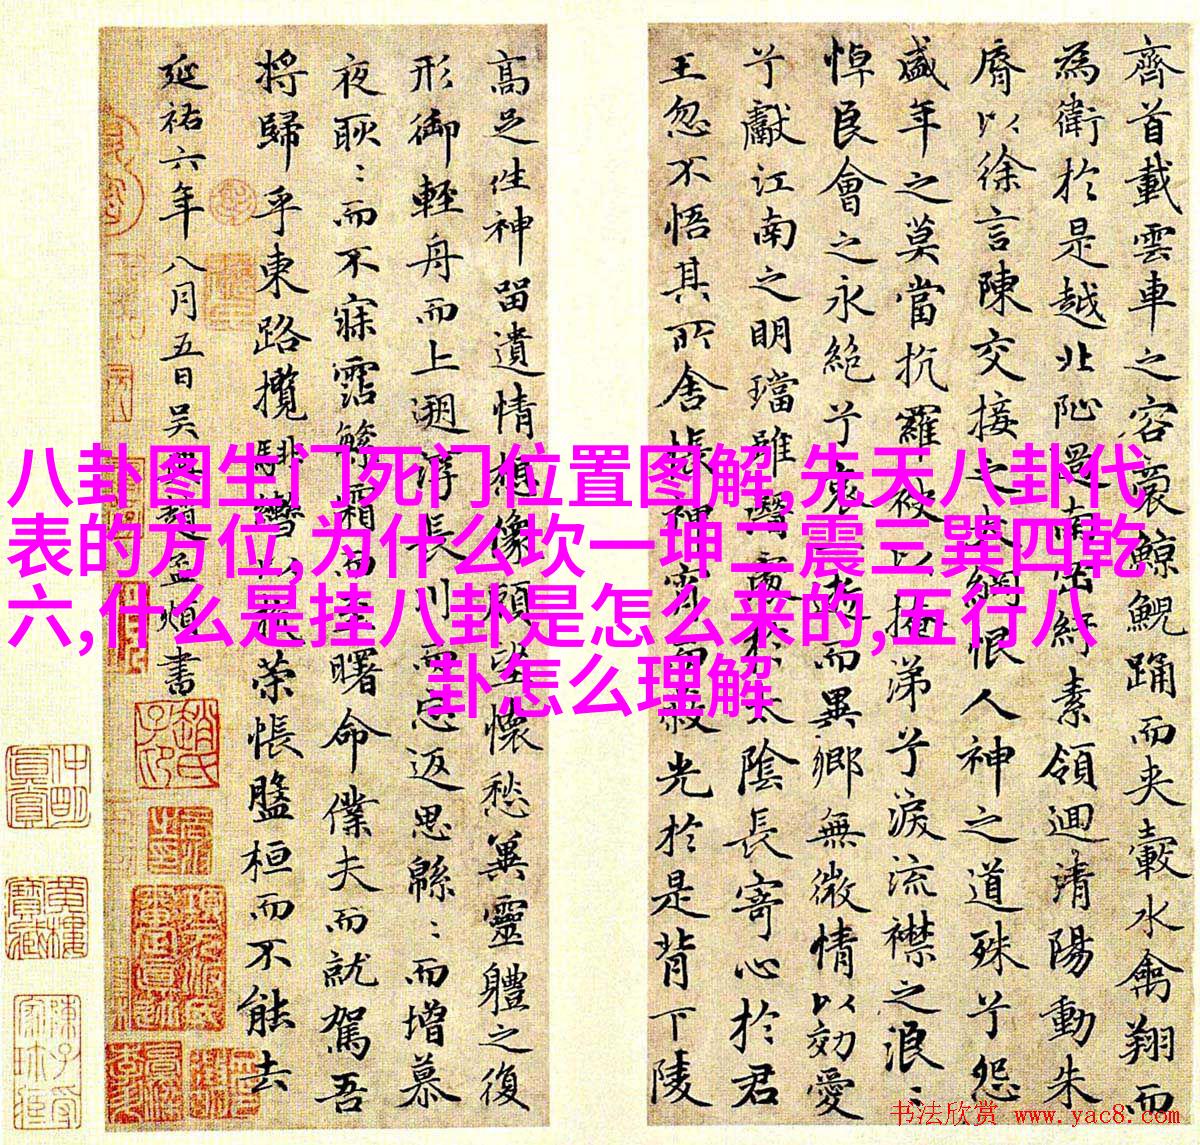 八卦图生门死门位置图解,先天八卦代
表的方位,为什么坎一坤二震三巽四乾
六,什么是挂八卦是怎么来的,五行八
卦怎么理解
齊首載雲車之容裔鯨鯢踊而夾轂水禽翔而
為衛於是越北沚過南岡紆素領迴清陽動朱
脣以徐言陳交接之大綱恨人神之道殊兮怨
盛年之莫當抗羅袂以掩涕兮淚流襟之浪:
悼良會之永絕兮哀逝而異鄉無微情以効愛
兮獻江南之明璫雖潛處於太陰長寄心於君
王忽不悟其所舍悵神宵而蔽光於是背下陵
高足往神留遺情想像顧望懷愁冀靈體之復
形御輕舟而上遡浮長川而忘返思緜:而增慕
夜耿:而不寐霑繁霜而至曙命僕夫而就駕吾
將歸乎東路攬騑轡以抗策悵盤桓而不能去
延祐六年八月五日吳興趙孟頫書
书法欣赏 www.yac8.com